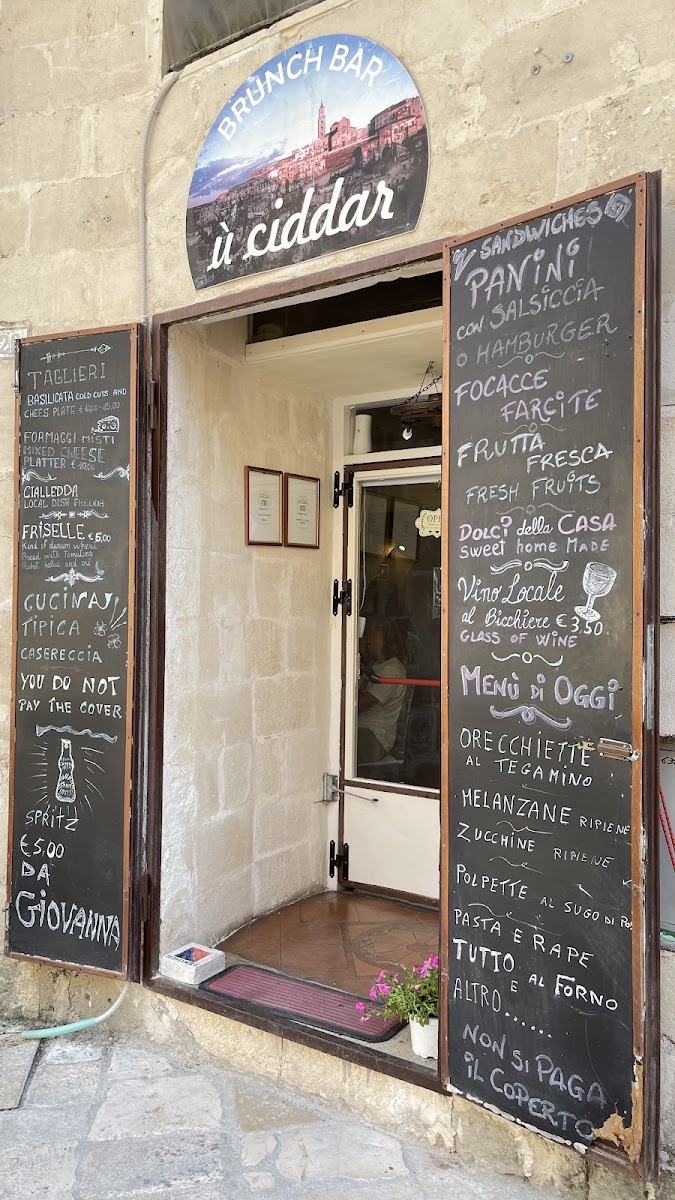 BRUNCH BAR
ù ciddar
TAGLIERI
BASILICATA COLD CUTS AND
CHEES PLATE €10,00-15,00
FORMAGGI MISTI
MIXED CHEESE
PLATTER €10,00
CIALLEDDA
LOCAL DISH FREDDA
FRISELLE €6,00
Kind of durum wheat
Bread with Tomatoes
salad and oil
CUCINA
TIPICA
CASERECCIA
YOU DO NOT
PAY THE COVER
SPRITZ
€5,00
DA
GIOVANNA
OPE
SANDWICHES
PANINI
CON SALSICCIA
O HAMBURGER
FOCACCE
FARCITE
FRUTTA
FRESCA
FRESH FRUITS
DOLCI della CASA
Sweet home MADE
Vino Locale
al Bicchiere €3,50
GLASS OF WINE
MENÙ DI OGGI
ORECCHIETTE
AL TEGAMINO
MELANZANE RIPIENE
ZUCCHINE RIPIENE
POLPETTE AL SUGO DI PO
PASTA E RAPE
TUTTO E AL FORNO
ALTRO......
NON SI PAGA
IL COPERTO